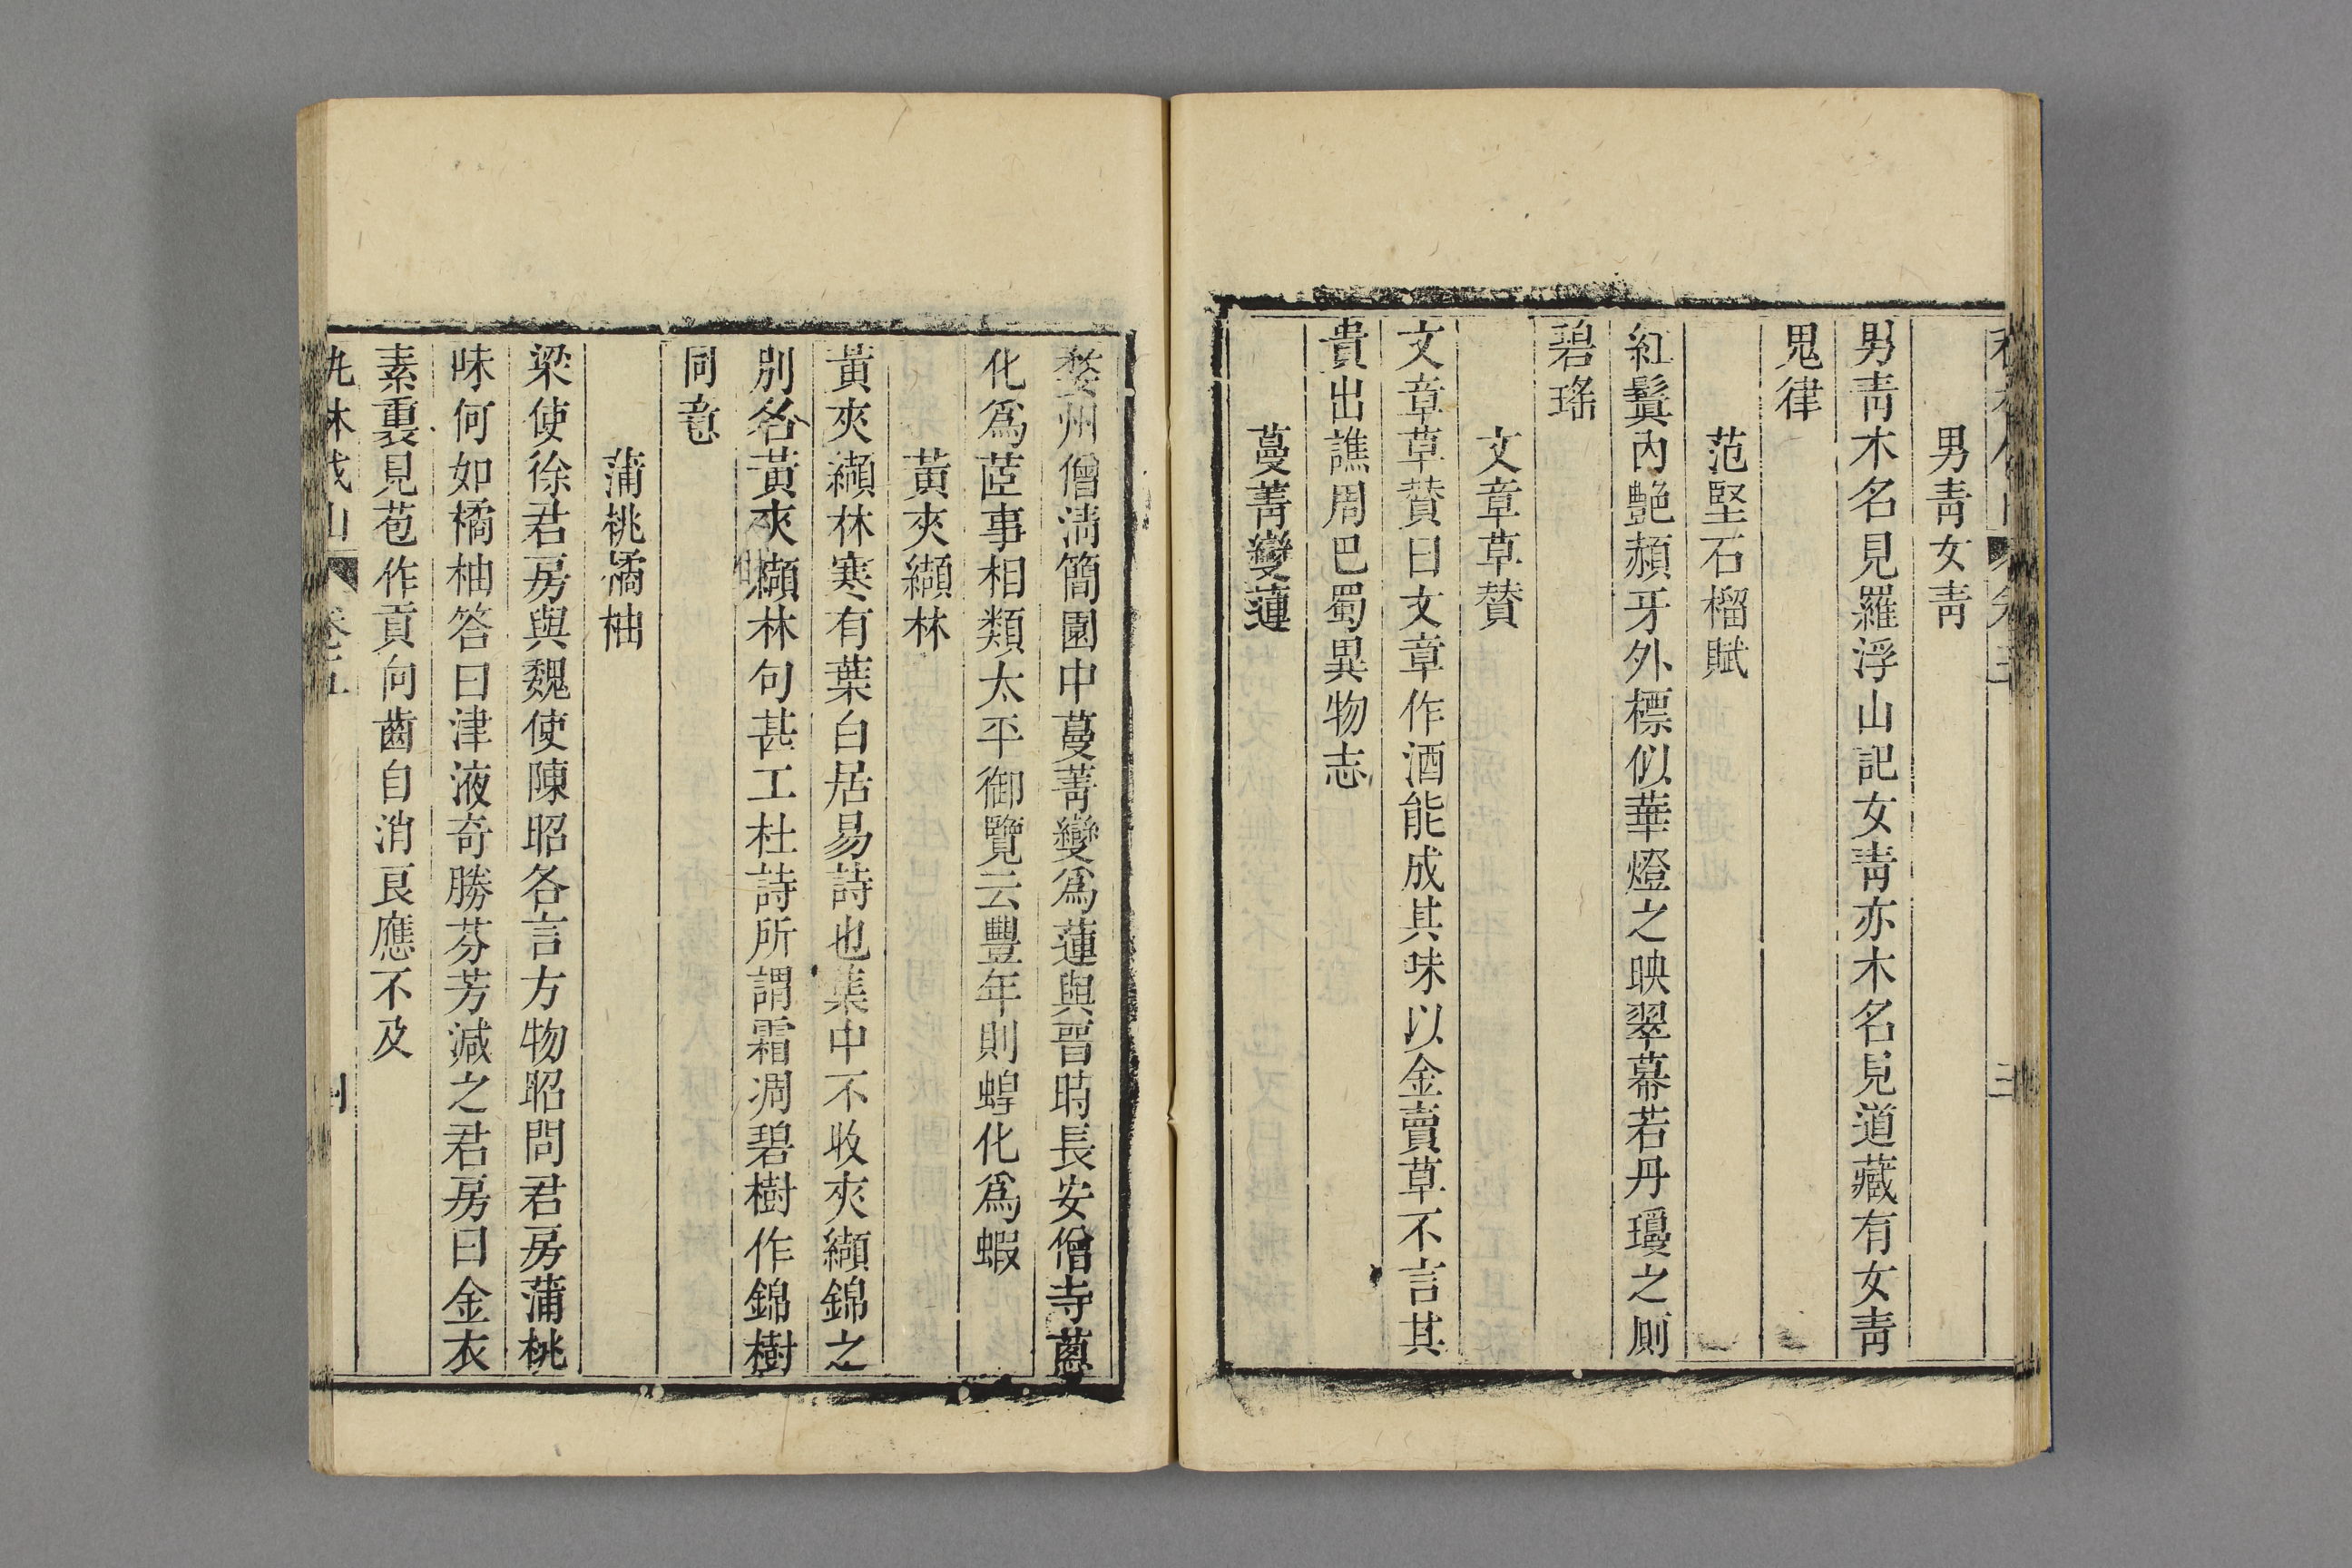 男青女青
男青木名見羅浮山記女青亦木名見道藏有女青
鬼律
范堅石榴賦
紅鬚內艶頳牙外標似華燈之映翠幕若丹瓊之厠
碧瑤
文章草賛
文章草賛曰文章作酒能成其味以金賣草不言其
貴出譙周巴蜀異物志
蔓菁變蓮
婺州僧淸簡園中蔓菁變爲蓮與晉時長安僧寺蔥
化爲茝事相類太平御覽云豐年則蝗化爲蝦
黃夾纈林
黃夾纈林寒有葉白居易詩也集中不收夾纈錦之
別名黃夾纈林句甚工杜詩所謂霜凋碧樹作錦樹
同意
蒲桃橘柚
梁使徐君房與魏使陳昭各言方物昭問君房蒲桃
味何如橘柚答曰津液奇勝芬芳減之君房曰金衣
素裏見苞作貢向齒自消良應不及
卷五